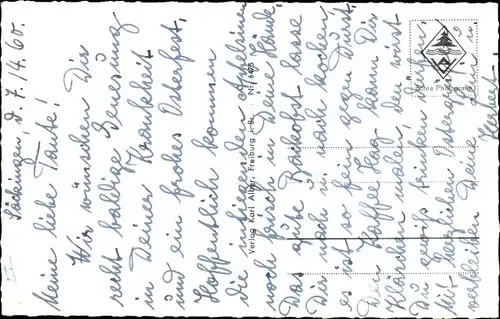 Säckingen, d. 7./4.60.
Meine liebe Tante!
Wir wünschen Dir
recht baldige Genesung
in Deiner Krankheit
und ein frohes Osterfest.
Hoffentlich kommen
die hier den Apfelsinen
noch frisch in Deine Hände,
Das gute Backobst lasse
Dir nur nach kochen
es ist so fein gegen Durst,
Den Kaffee Hag kann Dir
Klärchen malen, den wirst
Du gewiß trinken dürfen.
Mit herzlichen Ostergrüßen
verbleiben Deine
Herbert
Verlag Karl Alber, Freiburg i. B. Nr. 1675
Echte Photographie